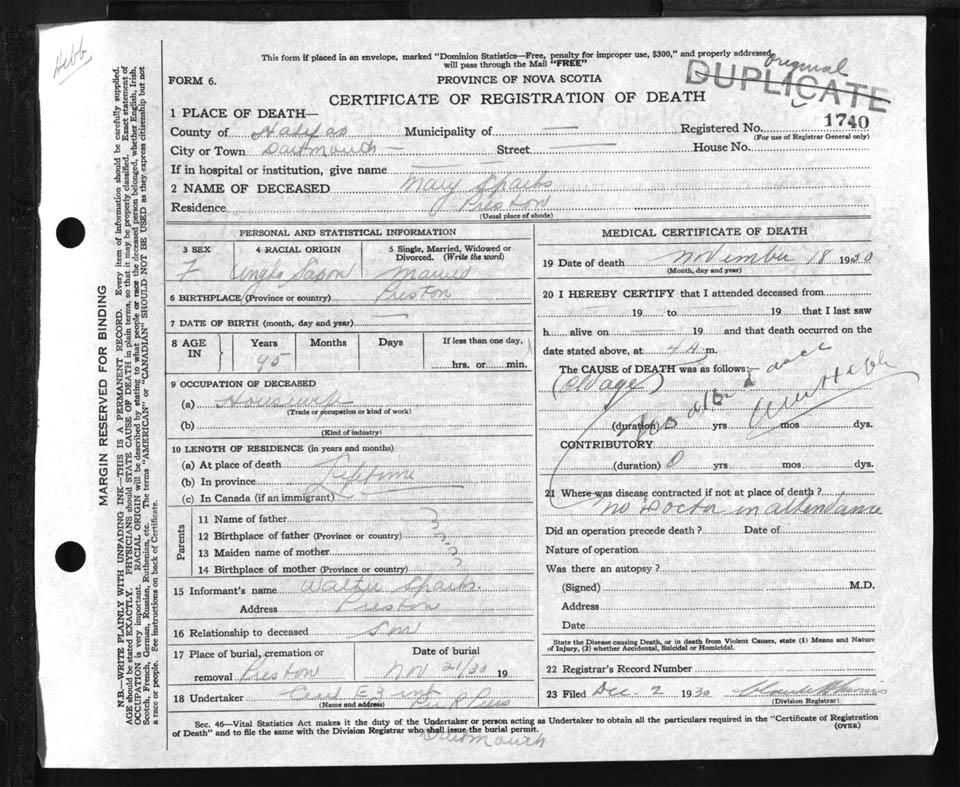 Hebb
This form if placed in an envelope, marked "Dominion Statistics—Free, penalty for improper use, $300," and properly addressed,
will pass through the Mail "FREE"
original
DUPLICATE
FORM 6.
PROVINCE OF NOVA SCOTIA
CERTIFICATE OF REGISTRATION OF DEATH
1740
1 PLACE OF DEATH—
County of Halifax Municipality of — Registered No.
(For use of Registrar General only)
City or Town Dartmouth — Street — House No.
If in hospital or institution, give name
2 NAME OF DECEASED Mary Sparks
Residence Preston
(Usual place of abode)
PERSONAL AND STATISTICAL INFORMATION
3 SEX 4 RACIAL ORIGIN 5 Single, Married, Widowed or Divorced. (Write the word)
F Anglo Saxon Married
6 BIRTHPLACE (Province or country) Preston
7 DATE OF BIRTH (month, day and year) —
8 AGE IN Years Months Days If less than one day,
95 hrs. or min.
9 OCCUPATION OF DECEASED
(a) Housewife
(Trade or occupation or kind of work)
(b)
(Kind of industry)
10 LENGTH OF RESIDENCE (in years and months)
(a) At place of death
(b) In province Lifetime
(c) In Canada (if an immigrant)
Parents
11 Name of father
12 Birthplace of father (Province or country)
13 Maiden name of mother
14 Birthplace of mother (Province or country)
15 Informant's name Walter Sparks.
Address Preston
16 Relationship to deceased Son
17 Place of burial, cremation or removal Preston
Date of burial Nov 21/30 19
18 Undertaker
(Name and address)
MEDICAL CERTIFICATE OF DEATH
19 Date of death November 18 1930
(Month, day and year)
20 I HEREBY CERTIFY that I attended deceased from
19 to 19 that I last saw
h alive on 19 and that death occurred on
date stated above, at 4 A m.
The CAUSE of DEATH was as follows:
(Old age)
(duration) yrs mos dys.
CONTRIBUTORY
(duration) 0 yrs mos dys.
21 Where was disease contracted if not at place of death?
no Doctor in attendance
Did an operation precede death? Date of
Nature of operation
Was there an autopsy?
(Signed) M.D.
Address
Date
State the Disease causing Death, or in death from Violent Causes, state (1) Means and Nature
of Injury, (2) whether Accidental, Suicidal or Homicidal.
22 Registrar's Record Number
23 Filed Dec - 2 1930
(Division Registrar)
Sec. 46—Vital Statistics Act makes it the duty of the Undertaker or person acting as Undertaker to obtain all the particulars required in the "Certificate of Registration
of Death" and to file the same with the Division Registrar who shall issue the burial permit.
(OVER)
Dartmouth
MARGIN RESERVED FOR BINDING
N.B.—WRITE PLAINLY WITH UNFADING INK—THIS IS A PERMANENT RECORD. Every item of information should be carefully supplied.
AGE should be stated EXACTLY. PHYSICIANS should STATE CAUSE OF DEATH in plain terms, so that it may be properly classified. Exact statement of
OCCUPATION is very important. RACIAL ORIGIN will be described by stating to what people or race the deceased person belonged, whether English, Irish,
Scotch, French, German, Russian, Ruthenian, etc. The terms "AMERICAN" or "CANADIAN" SHOULD NOT BE USED as they express citizenship but not
a race or people. See instructions on back of Certificate.